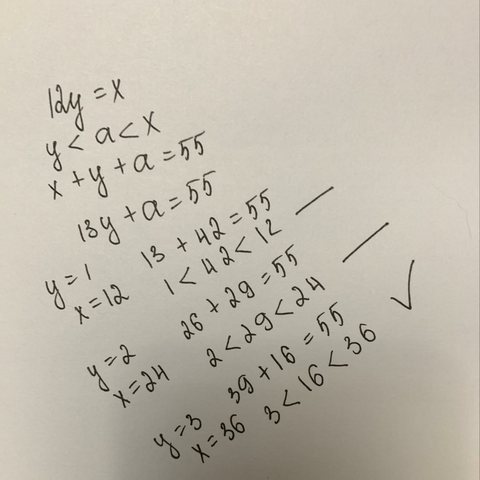 12y = x
y < a < x
x + y + a = 55
13y + a = 55
y = 1 13 + 42 = 55
x = 12 1 < 42 < 12 —
y = 2 26 + 29 = 55
x = 24 2 < 29 < 24 —
y = 3 39 + 16 = 55
x = 36 3 < 16 < 36 ✓